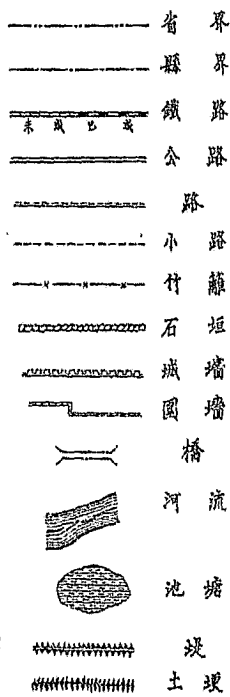 省界
縣界
鐵路
未成 已成
公路
路
小路
竹籬
石垣
城墻
圍墻
橋
河流
池塘
堤
土埂